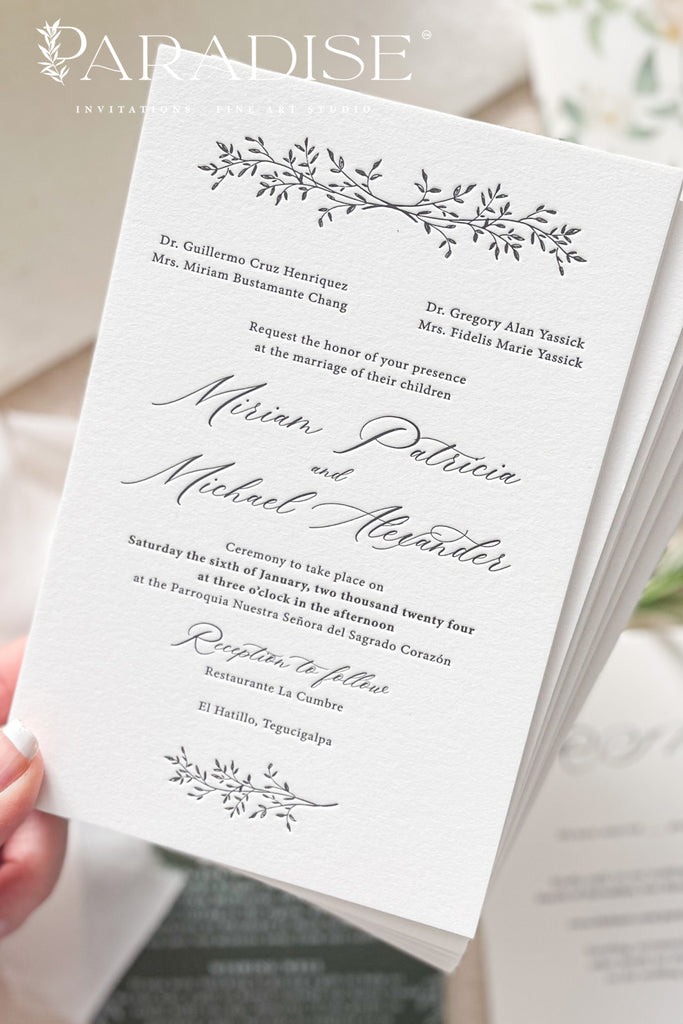 PARADISE
INVITATIONS FINE ART STUDIO
Dr. Guillermo Cruz Henriquez
Mrs. Miriam Bustamante Chang
Dr. Gregory Alan Yassick
Mrs. Fidelis Marie Yassick
Request the honor of your presence
at the marriage of their children
Miriam Patricia
and
Michael Alexander
Ceremony to take place on
Saturday the sixth of January, two thousand twenty four
at three o'clock in the afternoon
at the Parroquia Nuestra Señora del Sagrado Corazón
Reception to follow
Restaurante La Cumbre
El Hatillo, Tegucigalpa